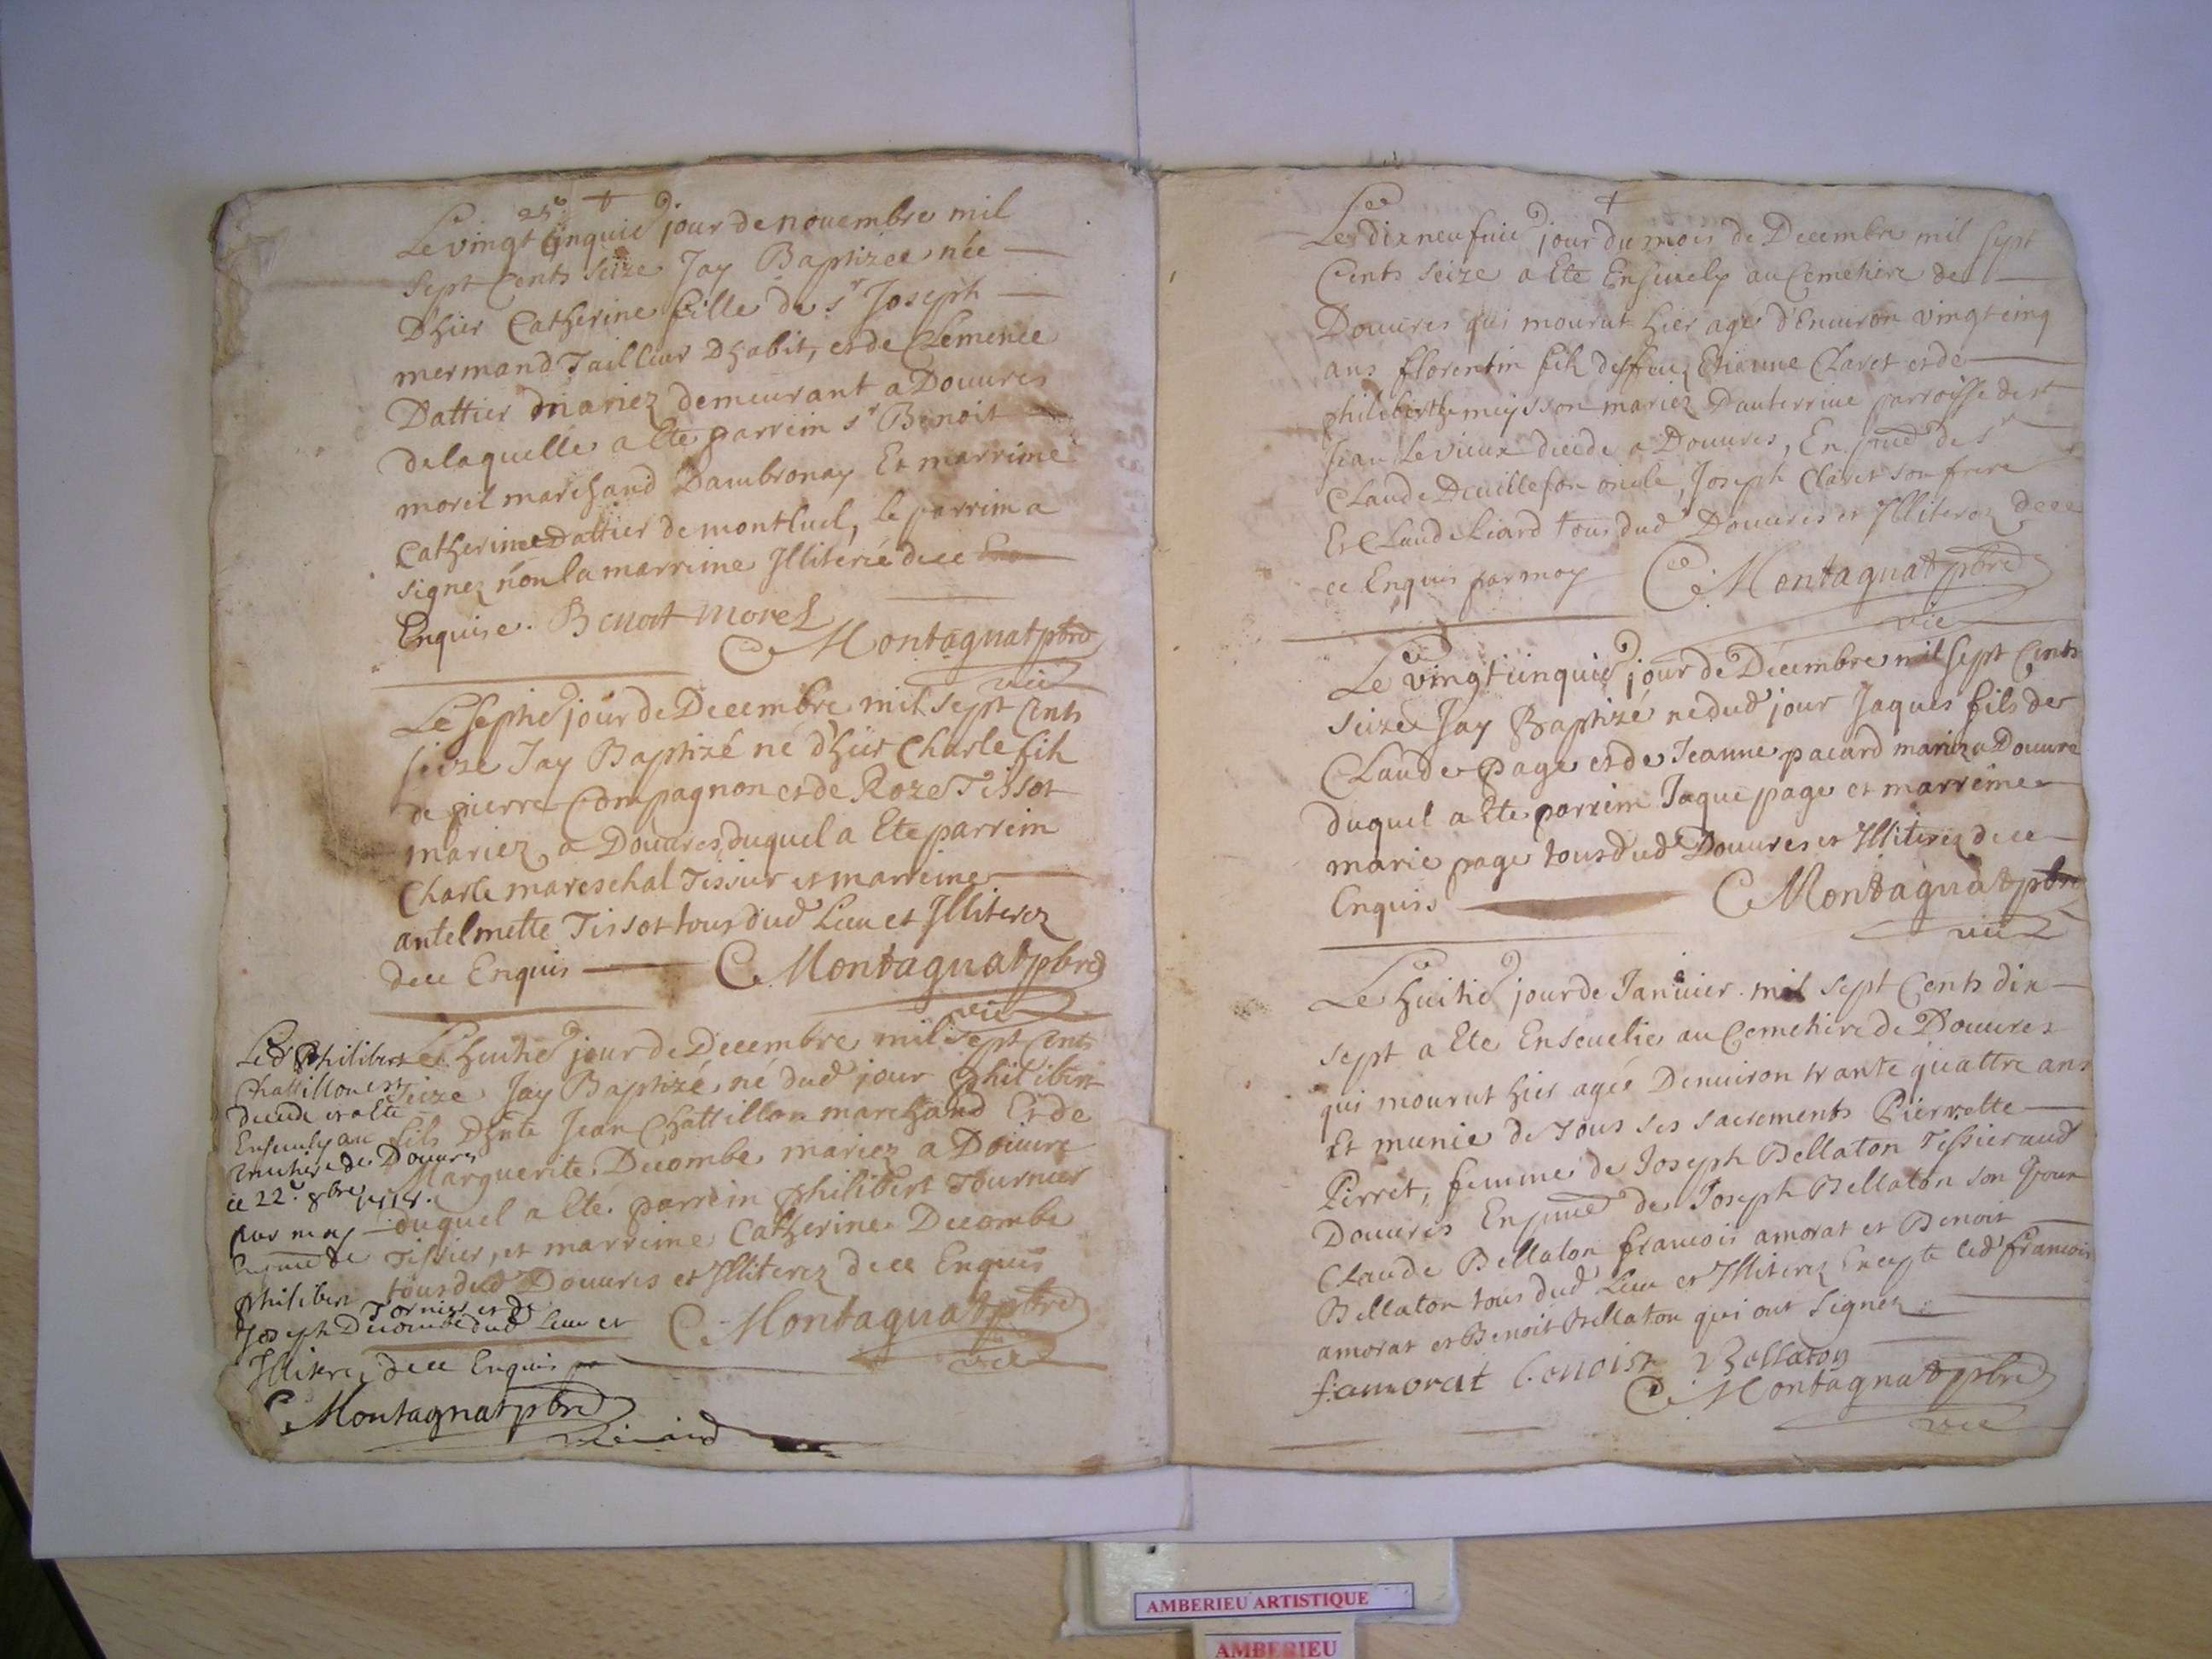 25e +
Le vingt cinquie jour de novembre mil
sept Cents seize Jay Baptizee née
Dhier Catherine fille de sr Joseph
mermand Tailleur Dhabit, et de Clemence
Dattier mariez demeurant a Douures
de laquelle a Ete parrim sr Benoit
morel marchand Dambronay Et marrime
Catherine Dattier de montluel, le parrim a
signez non la marrime Illiteree de ce
Enquise. Benoit morel
C Montagnat pbre
vic
Le septie jour de Decembre mil sept Cents
seize Jay Baptizé né d'hier Charle fils
de pierre Compagnon et de Roze Tissot
mariez a Douures, duquel a Ete parrein
Charle mareschal Tissier et marreine
antelmette Tissot tous dud Lieu et Illiterez
de ce Enquis C Montagnat pbre
vic
Le huitie jour de Decembre mil sept Cents
seize Jay Baptizé né dud jour philibert
fils Dhnte Jean Chattillon marchand Et de
Marguerite Decombe mariez a Douure
duquel a Eté parrein philibert Tournier
Tissier, et marreine Catherine Decombe
tous dud Douures et Illiterez de ce Enquis
C Montagnat pbre
vic
Led philibert
Chattillon est
decede et a Ete
Enseuely au
cemetiere de Douures
ce 22e 8bre
par moy
En pnce de
philibert
Tornier et de
Joseph Decombe dud Lieu et
Illiterez de ce Enquis
C Montagnat pbre
+
Le dix neufuie jour du mois de Decembre mil sept
Cents seize a Ete Enseuely au Cemetiere de
Douures qui mourut hier agé d'Enuiron vingt cinq
ans florentin fils deffeu Etienne Claret et de
philiberthe meysson mariez Dauterriue parroisse de st
Jean Le vieux decede a Douures, En pnce de sr
Claude Deuille son oncle, Joseph Claret son frere
Et Claude Liard tous dud Douures et Illiterez de
ce Enquis par moy C Montagnat pbre
vic
Le vingt cinquie jour de Decembre mil sept Cents
seize Jay Baptizé né dud jour Jaques fils de
Claude Page et de Jeanne pacard mariez a Douure
duquel a Ete parrim Jaque page et marreine
marie page tous dud Douures et Illiterez de ce
Enquis C Montagnat pbre
vic
Le huitie jour de Januier mil sept Cents dix
sept a Ete Enseuelie au Cemetiere de Douures
qui mourut hier ageé Denuiron trante quattre ans
Et munie de tous ses sacrements Pierrette
Pirret, femme de Joseph Bellaton Tissier aud
Douures En pnce de Joseph Bellaton son
Claude Bellaton francois amorat et Benoit
Bellaton tous dud Lieu et Illiterez Excepte led francois
amorat et Benoit Bellaton qui ont signez
f. amorat benoist Bellaton
C Montagnat pbre
vic
AMBERIEU ARTISTIQUE
AMBERIEU